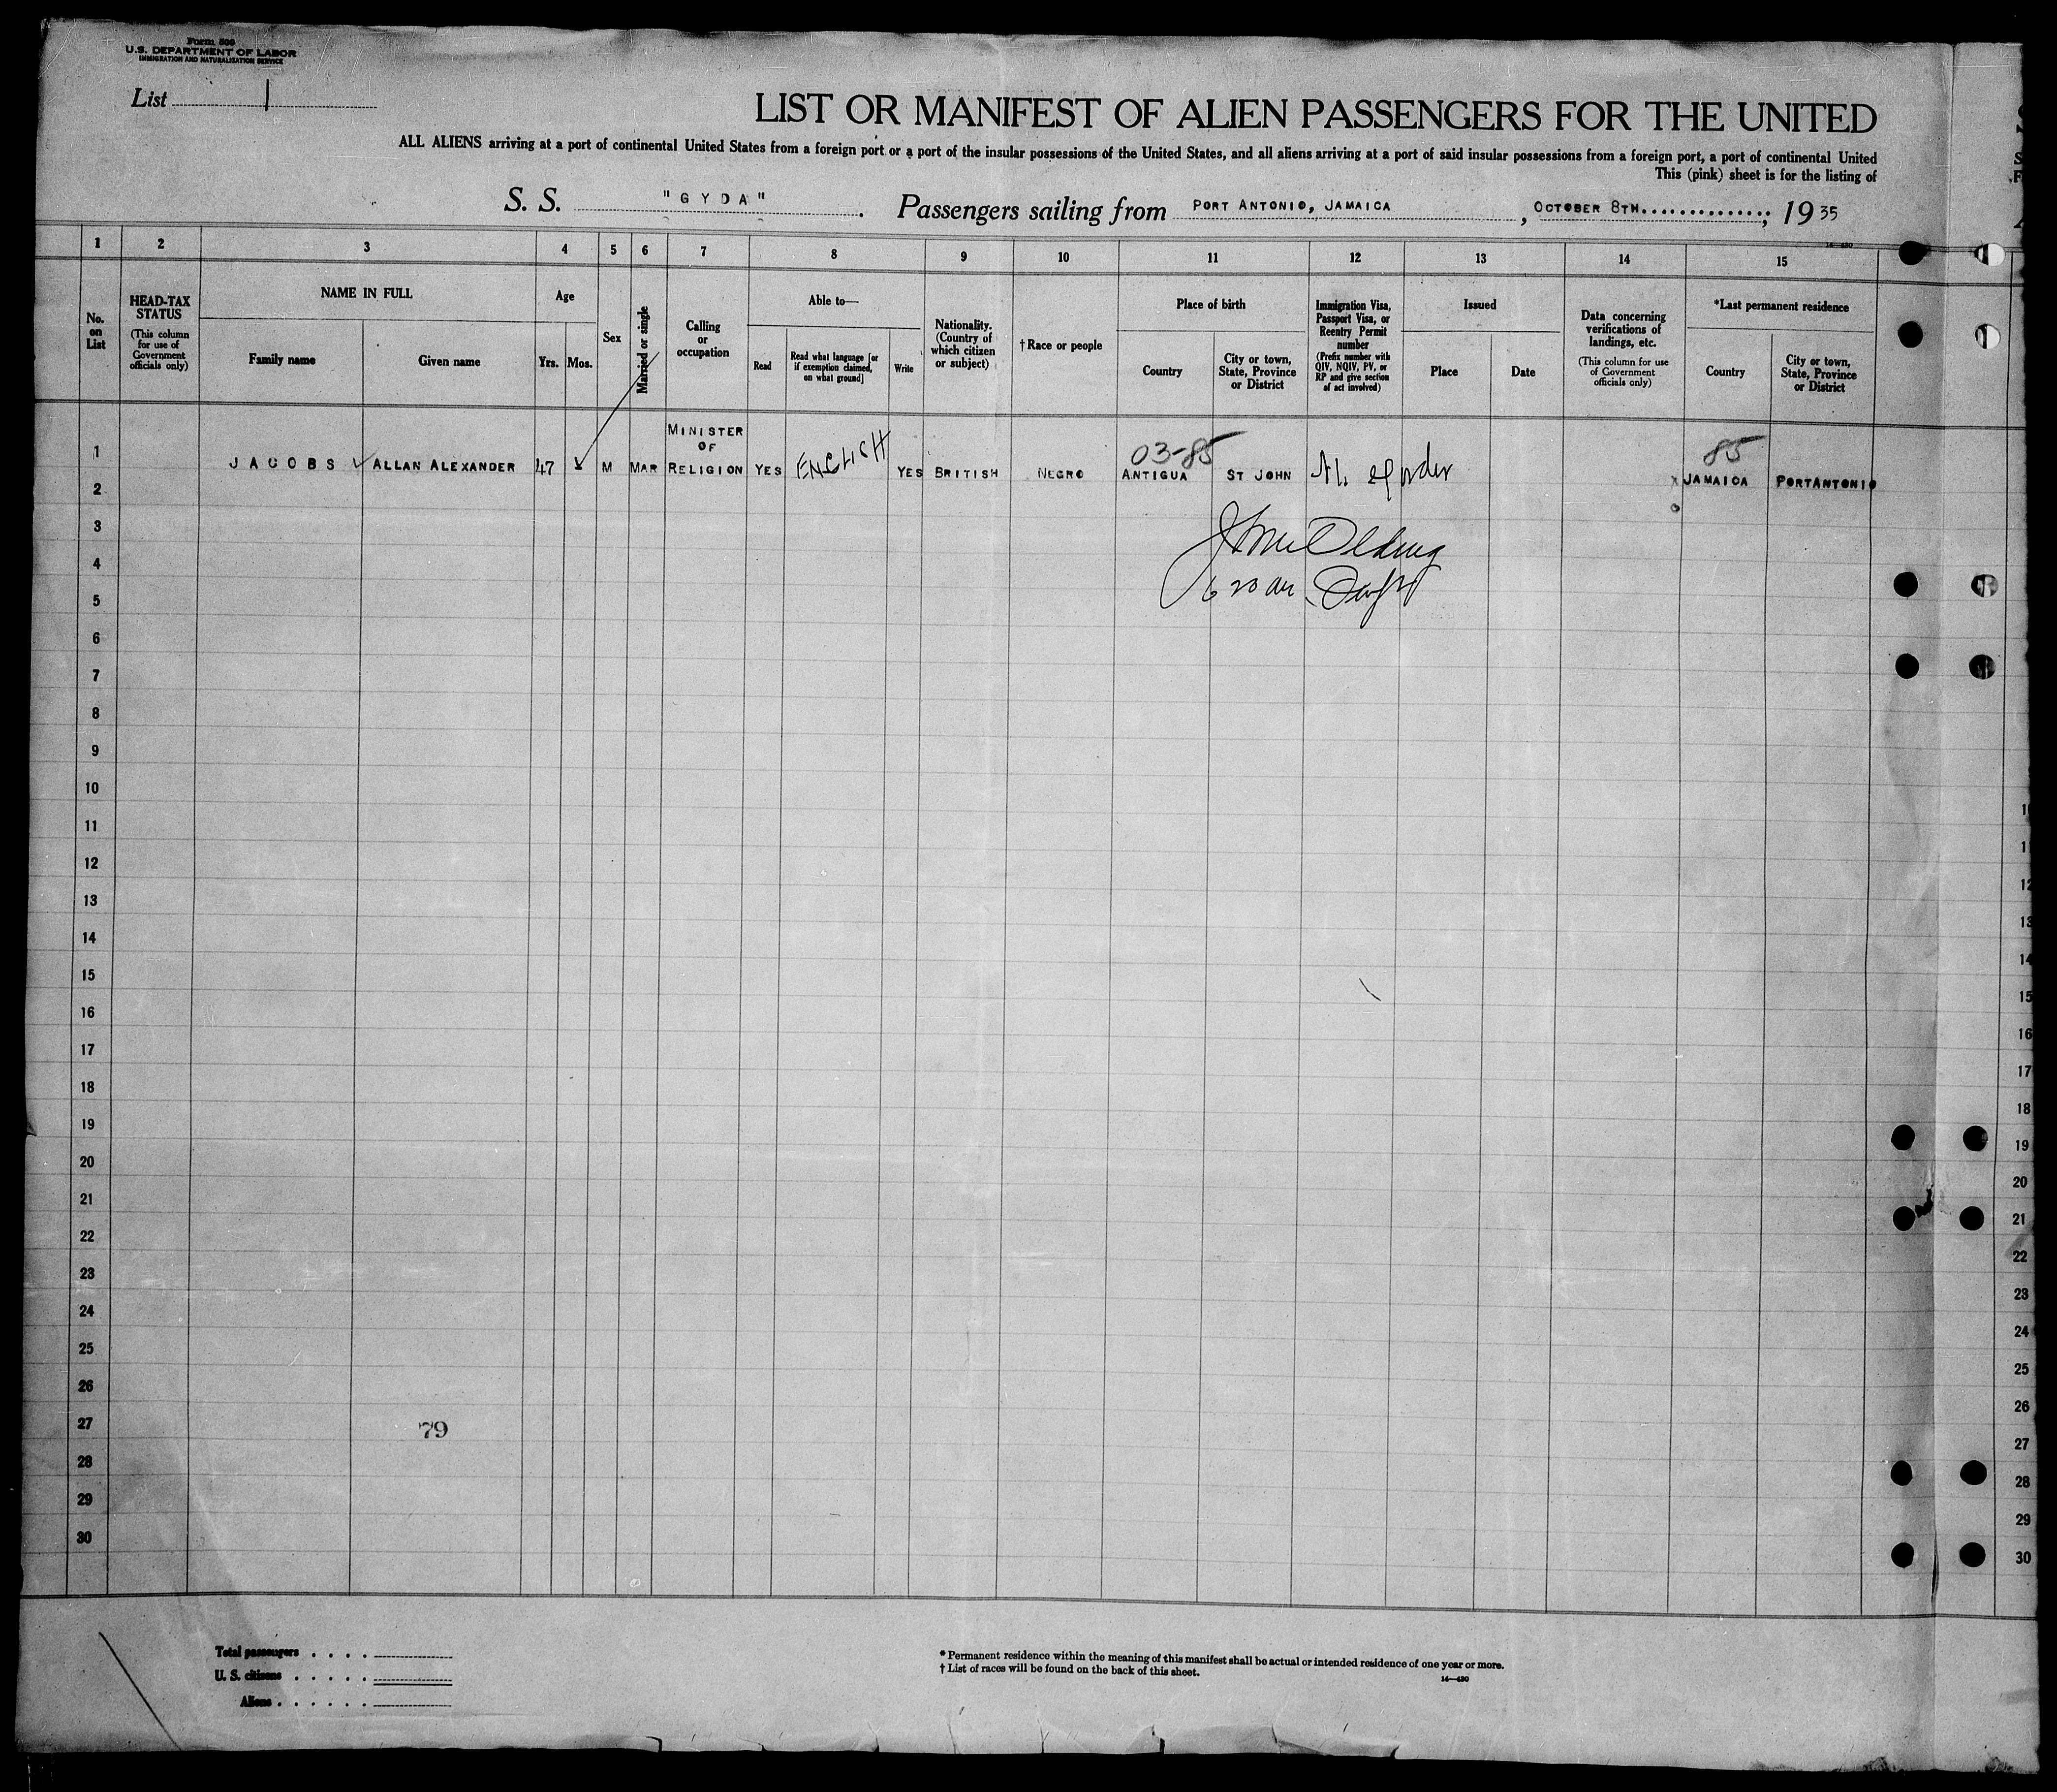 Form 500
U.S. DEPARTMENT OF LABOR
IMMIGRATION AND NATURALIZATION SERVICE
List 1
LIST OR MANIFEST OF ALIEN PASSENGERS FOR THE UNITED
ALL ALIENS arriving at a port of continental United States from a foreign port or a port of the insular possessions of the United States, and all aliens arriving at a port of said insular possessions from a foreign port, a port of continental United
This (pink) sheet is for the listing of
S. S. "GYDA". Passengers sailing from PORT ANTONIO, JAMAICA, OCTOBER 8TH..............; 19 35
1 2 3 4 5 6 7 8 9 10 11 12 13 14 15
No. on List
HEAD-TAX STATUS
(This column for use of Government officials only)
NAME IN FULL
Family name
Given name
Age
Yrs.
Mos.
Sex
Married or single
Calling or occupation
Able to—
Read
Read what language [or if exemption claimed, on what ground]
Write
Nationality. (Country of which citizen or subject)
†Race or people
Place of birth
Country
City or town, State, Province or District
Immigration Visa, Passport Visa, or Reentry Permit number
(Prefix number with QIV, NQIV, PV, or RP and give section of act involved)
Issued
Place
Date
Data concerning verifications of landings, etc.
(This column for use of Government officials only)
*Last permanent residence
Country
City or town, State, Province or District
1 JACOBS ALLAN ALEXANDER 47 M MAR MINISTER OF RELIGION YES ENGLISH YES BRITISH NEGRO 03-85 ANTIGUA ST JOHN order 85 JAMAICA PORTANTONIO
2
3
4
5
6
7
8
9
10
11
12
13
14
15
16
17
18
19
20
21
22
23
24
25
26
27
28
29
30
79
10
11
12
13
14
15
16
17
18
19
20
21
22
23
24
25
26
27
28
29
30
Total passengers . . . .
U. S. citizens . . . . .
Aliens . . . . . .
* Permanent residence within the meaning of this manifest shall be actual or intended residence of one year or more.
† List of races will be found on the back of this sheet.
14—430